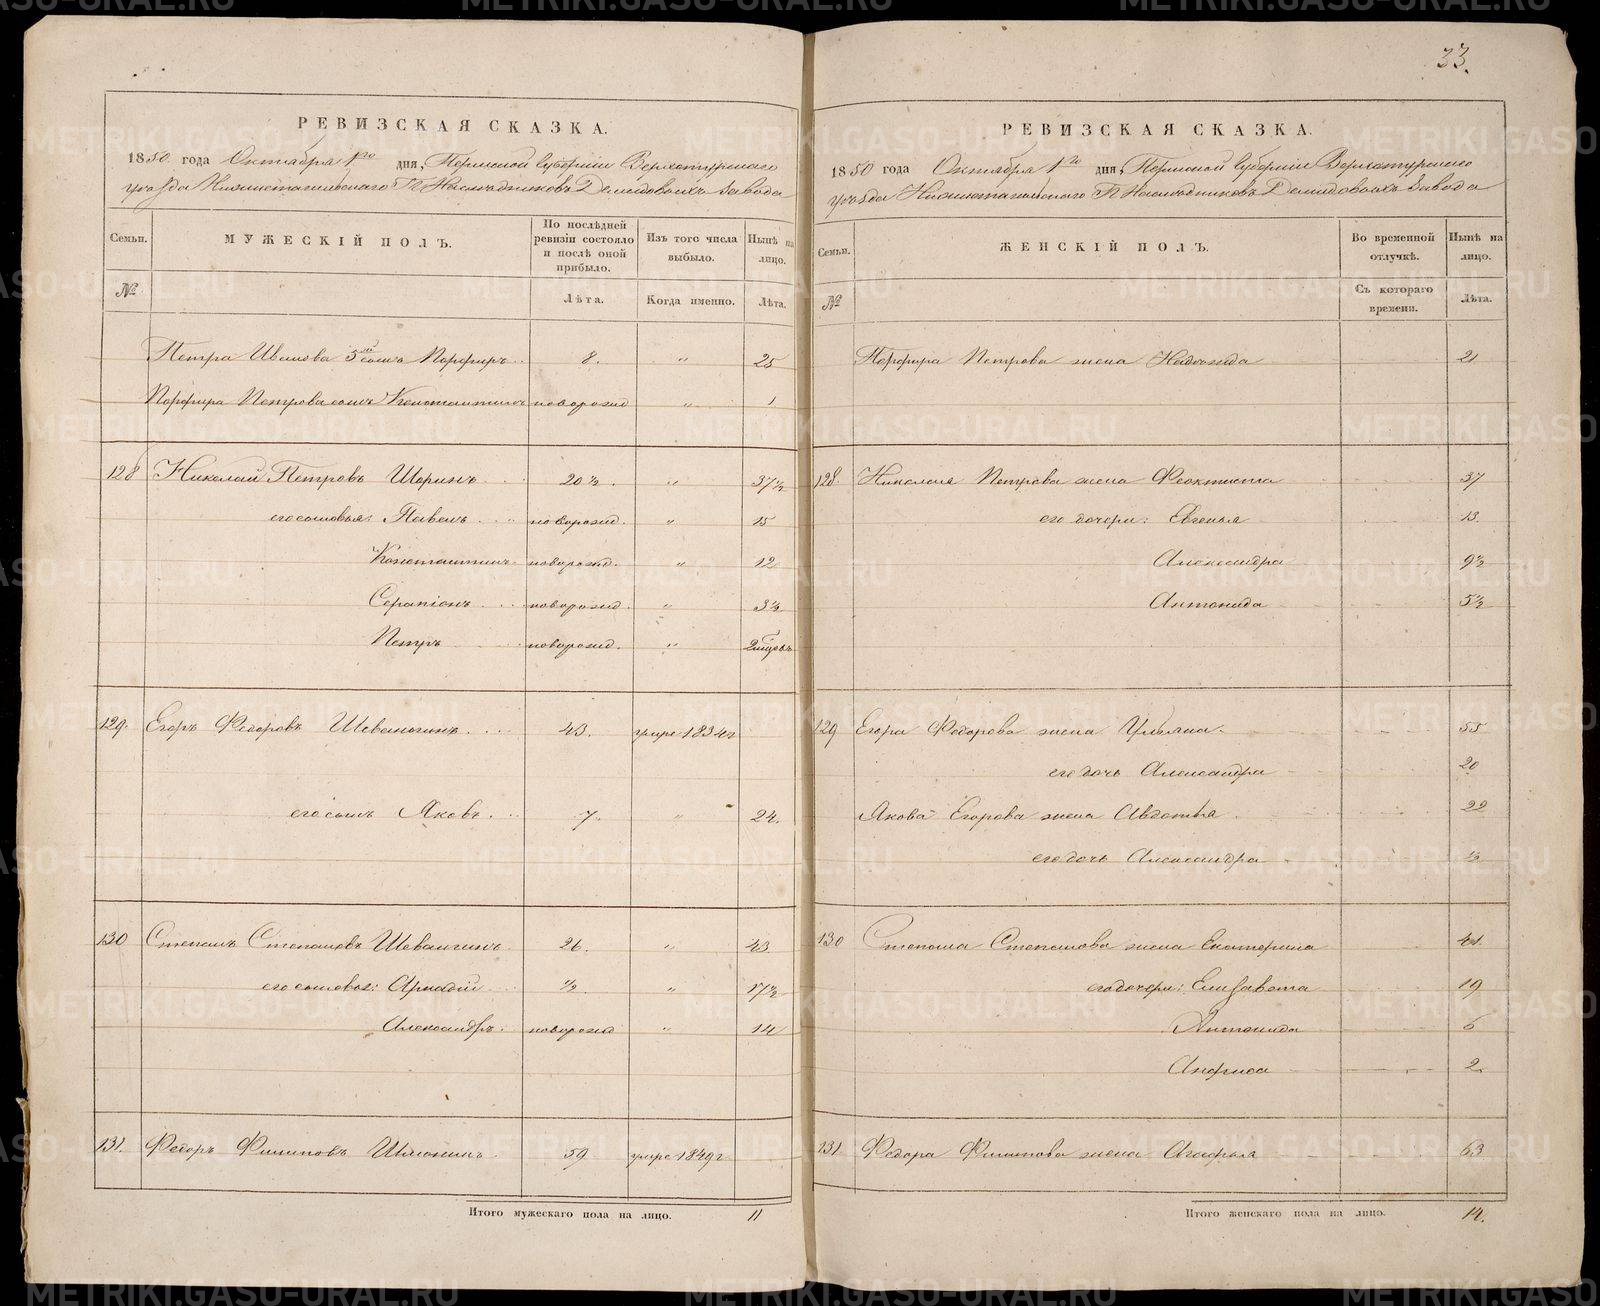 33.
РЕВИЗСКАЯ СКАЗКА.
1850 года Октября 1го дня, Пермской Губерніи Верхотурскаго
уѣзда Нижнетагильскаго Г.г. Наслѣдниковъ Демидовыхъ Завода
Семьи. МУЖЕСКІЙ ПОЛЪ. По послѣдней ревизіи состояло и послѣ оной прибыло. Изъ того числа выбыло. Нынѣ на лицо.
№ Лѣта. Когда именно. Лѣта.
Петра Иванова 5й сынъ Порфиръ 8. " 25
Порфира Петрова сынъ Константинъ новорожд " 1
128 Николай Петровъ Шоринъ 20½. " 37½
его сыновья: Павелъ новорожд. " 15
Константинъ новорожд. " 12
Серапіонъ новорожд. " 3½
Петръ новорожд. " 2 мѣсяцовъ
129. Егоръ Федоровъ Шевалгинъ 43. умре 1834 г
его сынъ Яковъ 7. " 24.
130 Степанъ Степановъ Шевалгинъ 26. " 43.
его сыновья: Аркадій ½. " 17½
Александръ новорожд " 14
131. Федоръ Филиповъ 59 умре 1849 г
Итого мужескаго пола на лицо. 11
РЕВИЗСКАЯ СКАЗКА.
1850 года Октября 1го дня, Пермской Губерніи Верхотурскаго
уѣзда Нижнетагильскаго Г.г. Наслѣдниковъ Демидовыхъ Завода
Семьи. ЖЕНСКІЙ ПОЛЪ. Во временной отлучкѣ. Нынѣ на лицо.
№ Съ котораго времени. Лѣта.
Порфира Петрова жена Надежда 21
128. Николая Петрова жена Феоктиста 37
его дочери: Евгенья 13.
Александра 9½
Антонида 5½
129 Егора Федорова жена Ульяна 55
его дочь Александра 20
Якова Егорова жена Авдотья 22
его дочь Александра ½
130 Степана Степанова жена Екатерина 41.
его дочери: Елизавета 19
Антонида 6
Анфиса 2.
131. Федора Филипова жена Агафья 63
Итого женскаго пола на лицо. 14.
METRIKI.GASO-URAL.RU